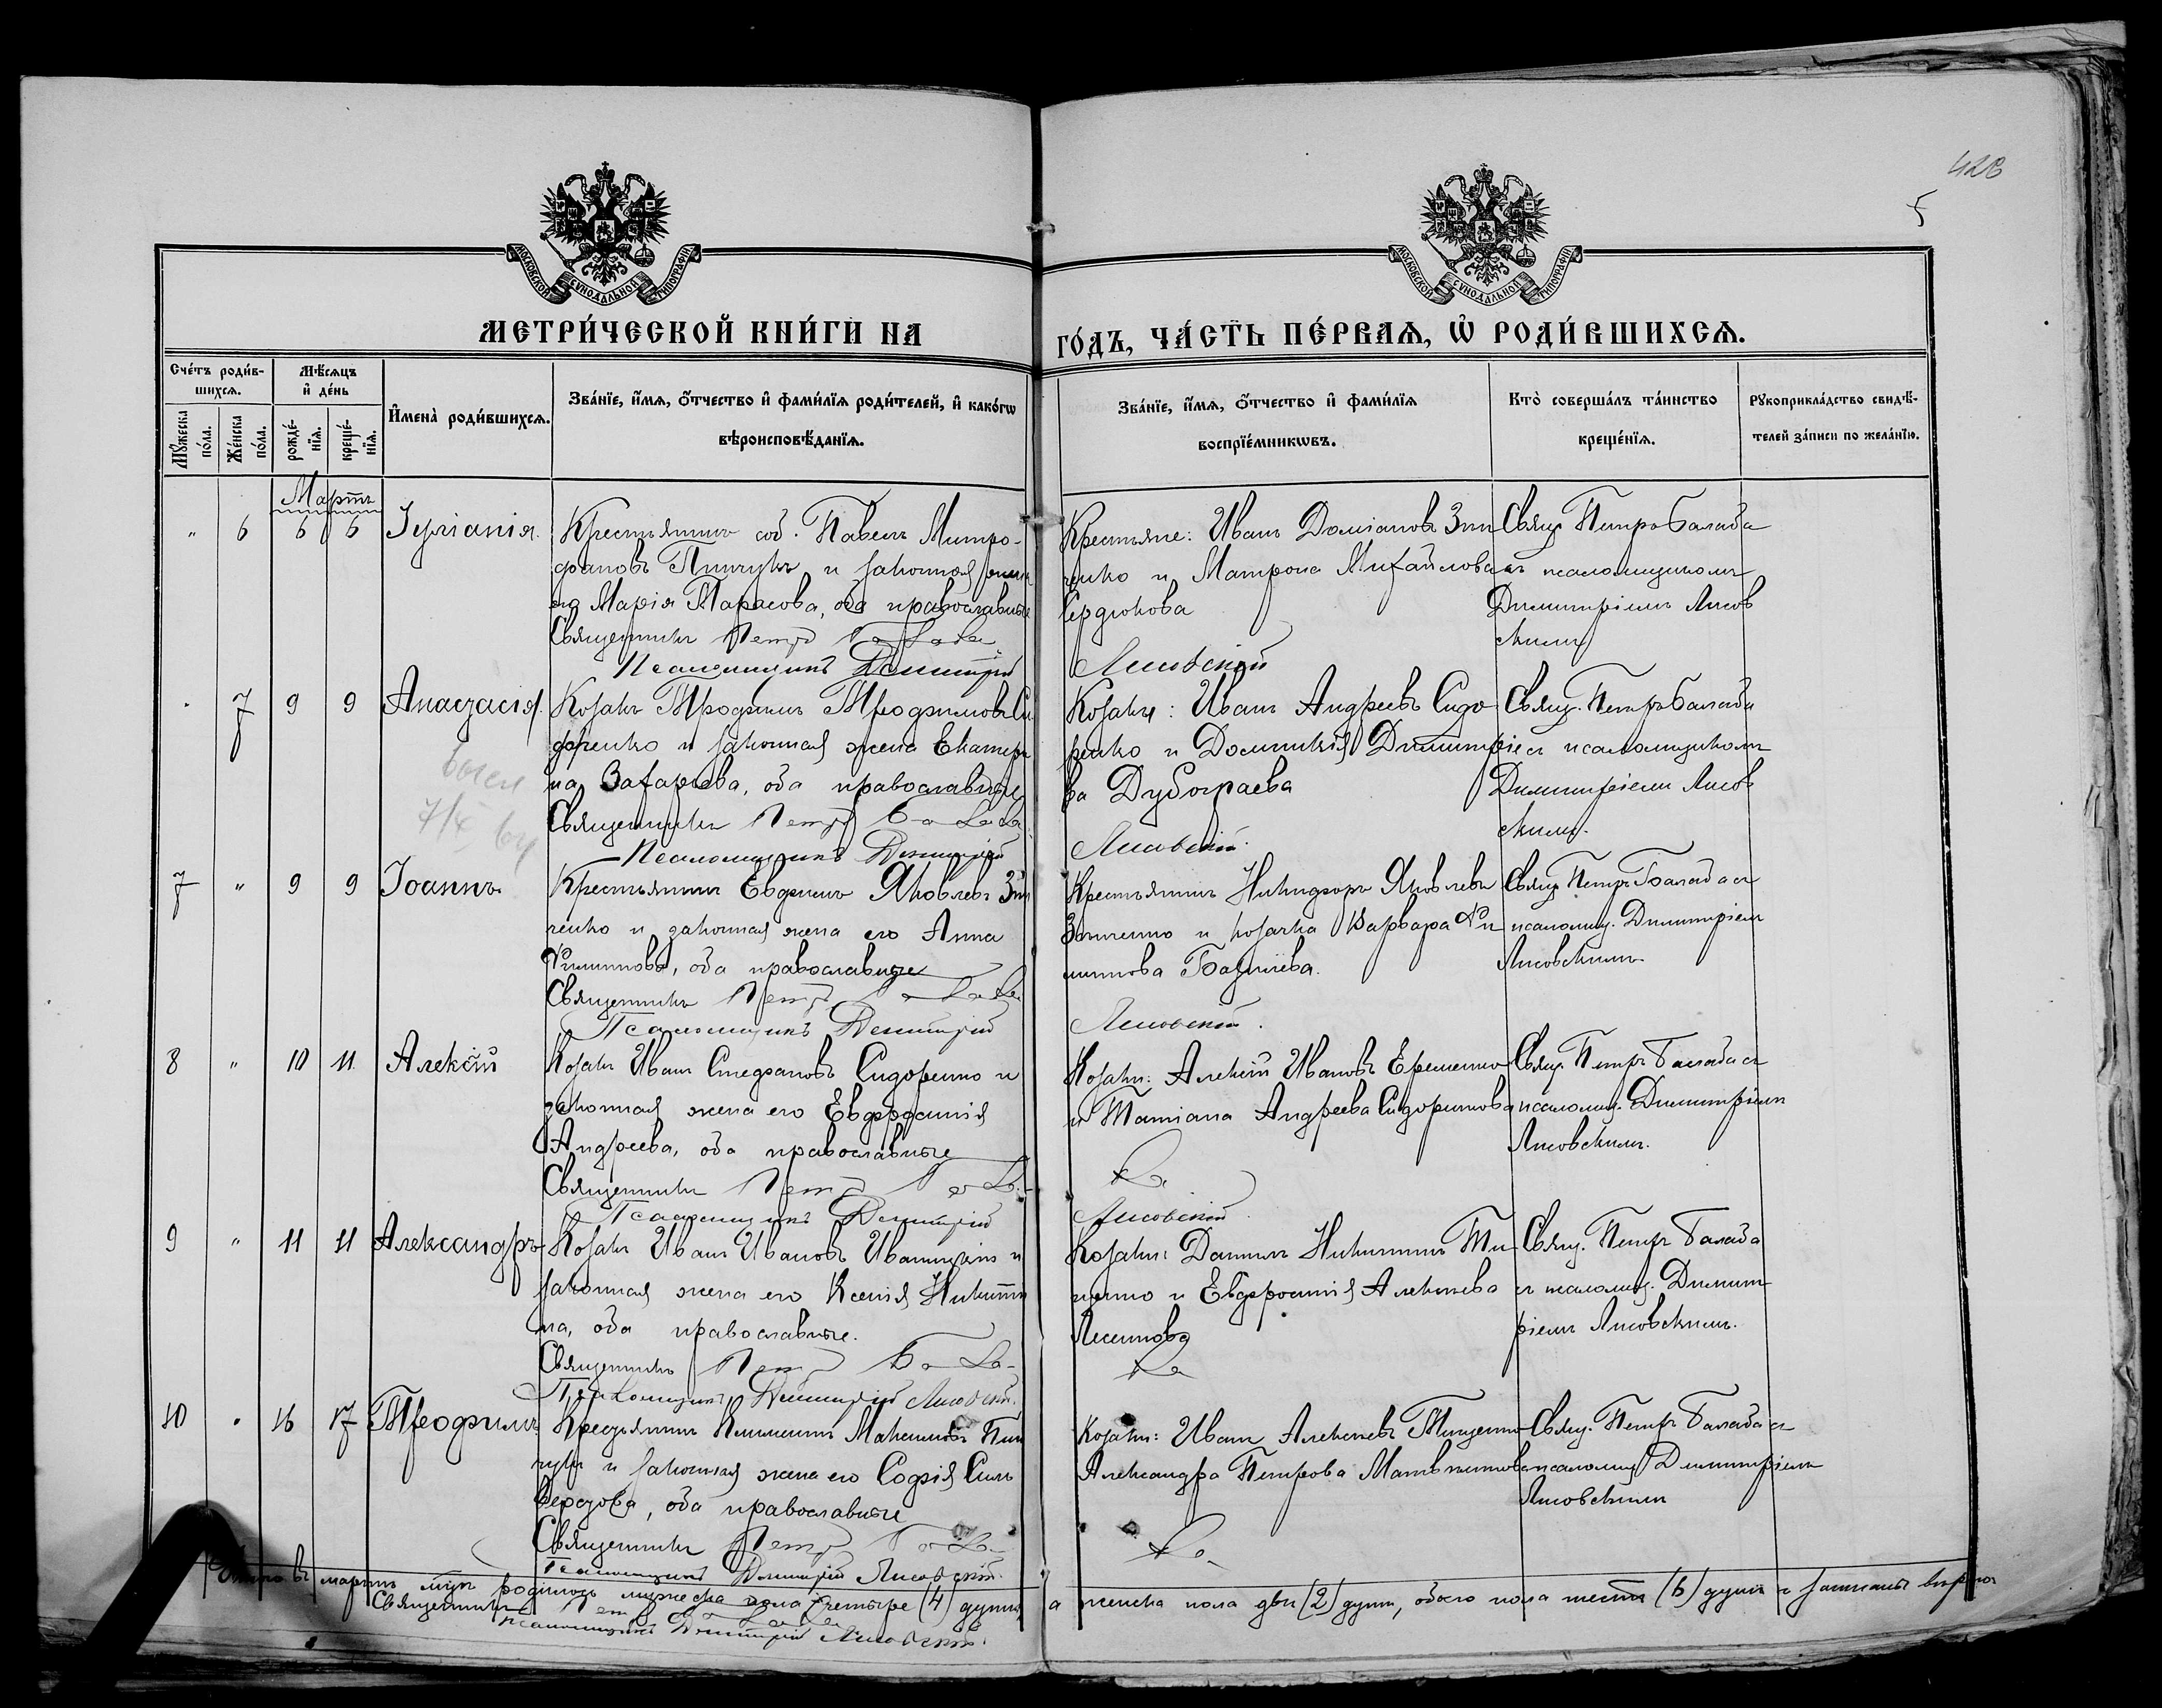 426
5
МОСКОВСКОЙ СѴНОДАЛЬНОЙ ТИПОГРАФІИ
МОСКОВСКОЙ СѴНОДАЛЬНОЙ ТИПОГРАФІИ
МЕТРИ́ЧЕСКОЙ КНИ́ГИ НА
ГО́ДЪ, ЧА́СТЬ ПЕ́РВАѦ, Ѡ РОДИ́ВШИХСѦ.
Сче́тъ роди́в-
шихсѧ.
Мѣ́сѧцъ
и҆ де́нь
Мꙋ́жеска
по́ла.
Же́нска
по́ла.
рожде́-
нїѧ.
креще́-
нїѧ.
И҆мена̀ роди́вшихсѧ.
Зва́нїе, и҆́мѧ, ѻ҆́тчество и҆ фами́лїѧ роди́телей, и҆ како́гѡ
вѣроисповѣ́данїѧ.
Зва́нїе, и҆́мѧ, ѻ҆́тчество и҆ фами́лїѧ
воспрїе́мникѡвъ.
Кто̀ соверша́лъ та́инство
креще́нїѧ.
Рꙋкоприкла́дство свидѣ́-
телей за́писи по жела́нїю.
Мартъ
" 6 6 6 Іуліанія.
Крестьянинъ соб. Павелъ Митро-
фановъ Пинчукъ и законная жена
его Марія Тарасова, оба православные
Священникъ Петръ Балаба
Псаломщикъ Димитрій
Крестьяне: Иванъ Доміановъ Зин
ченко и Матрона Михайлова
Сердюкова
Лисовскій
Свящ. Петръ Балаба
съ псаломщикомъ
Димитріемъ Лисов
скимъ
" 7 9 9 Анастасія.
Козакъ Трофимъ Трофимовъ Си
доренко и законная жена Екатери
на Захарьева, оба православные
Священникъ Петръ Балаба
Псаломщикъ Димитрій
Козаки: Иванъ Андреевъ Сидо
ренко и Домникія Димитріе
ва Дубограева
Лисовскій.
Свящ. Петръ Балаба
съ псаломщикомъ
Димитріемъ Лисов
скимъ.
7 " 9 9 Іоаннъ
Крестьянинъ Евфимъ Яковлевъ Зин
ченко и законная жена его Анна
Филиппова, оба православные
Священникъ Петръ Балаба
Псаломщикъ Димитрій
Крестьянинъ Никифоръ Яковлевъ
Зинченко и козачка Варвара Фи
липпова
Лисовскій.
Свящ. Петръ Балаба съ
псаломщ. Димитріемъ
Лисовскимъ
8 " 10 11 Алексій
Козакъ Иванъ Стефановъ Сидоренко и
законная жена его Евфросинія
Андреева, оба православные
Священникъ Петръ Бала-
ба
Псаломщикъ Димитрій
Козаки: Алексій Ивановъ Еременко
и Татіана Андреева Сидоренкова
Лисовскій
Свящ. Петръ Балаба съ
псаломщ. Димитріемъ
Лисовскимъ.
9 " 11 11 Александръ
Козакъ Иванъ Ивановъ и
законная жена его Ксенія Никити
на, оба православные.
Священникъ Петръ Бала-
ба
Псаломщикъ Димитрій Лисовскій.
Козаки: Даніилъ Никитинъ Ти
щенко и Евфросинія Алексіева
Свящ. Петръ Балаба
съ псаломщ. Димит
ріемъ Лисовскимъ.
10 " 16 17 Трофимъ
Крестьянинъ Климентъ Максимовъ Пин
чукъ и законная жена его Софія Силь
верстова, оба православные
Священникъ Петръ Бала-
ба
Псаломщикъ Димитрій Лисовскій.
Козаки: Иванъ Алексіевъ Тищенко
Александра Петрова
Свящ. Петръ Балаба съ
псаломщ. Димитріемъ
Лисовскимъ
Итого въ мартѣ м-цѣ родилось мужеска пола четыре (4) души а женска пола двѣ (2) души, обоего пола шесть (6) душъ и записаны вѣрно
Священникъ Петръ Балаба
Псаломщикъ Димитрій Лисовскій.